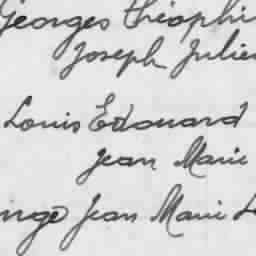 Georges Théophi
Joseph Julie
Louis Edouard
Jean Marie
nge Jean Marie L